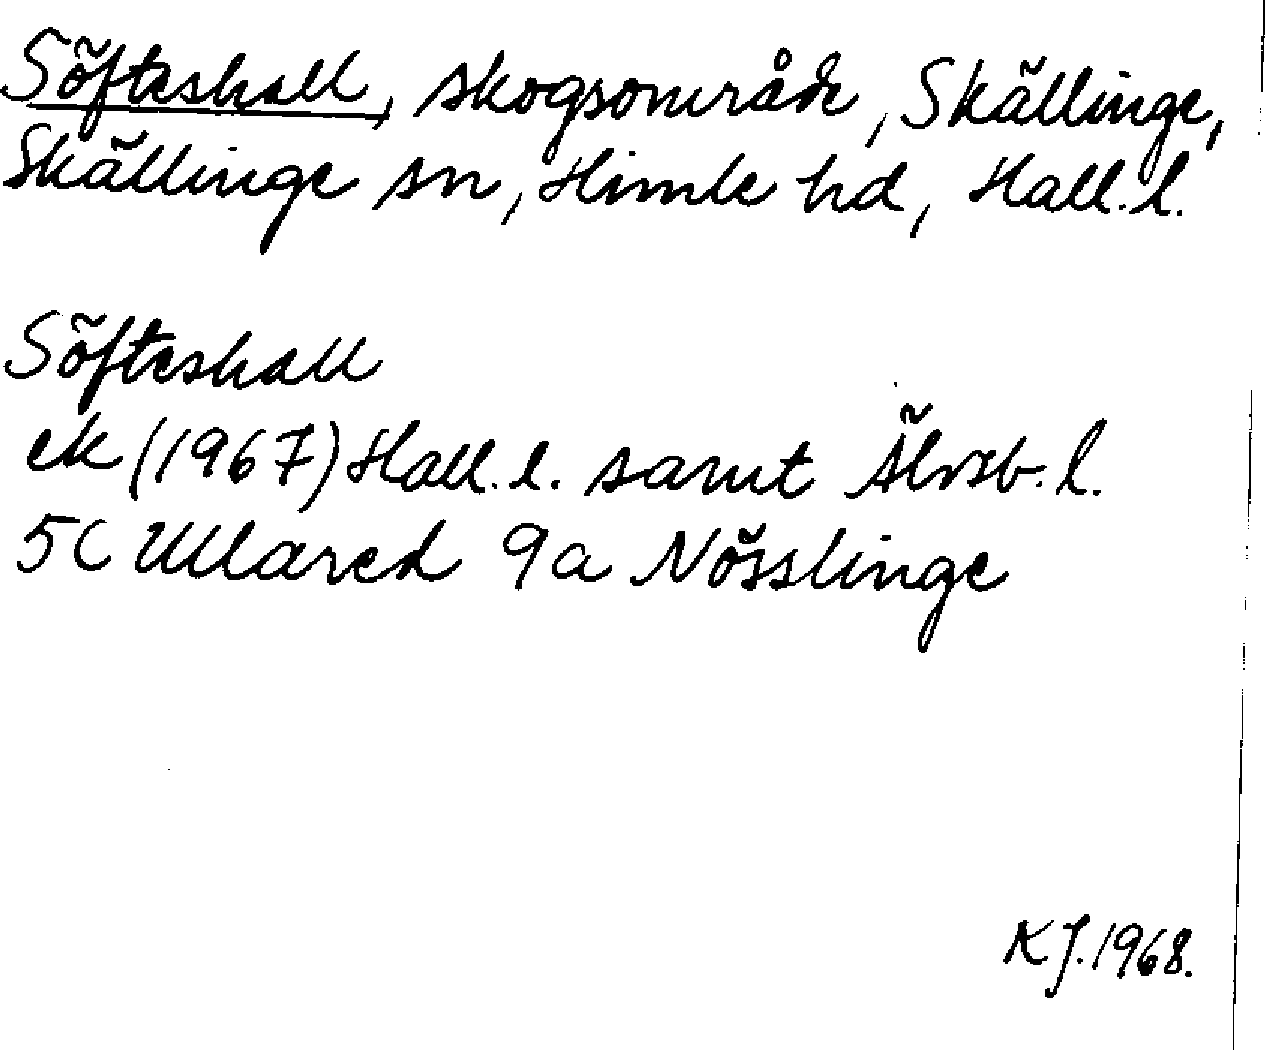 Söfteshall, skogsområde, Skällinge,
Skällinge sn, Himle hd, Hall. l.
Söfteshall
ek (1967) Hall. l. samt Älvsb. l.
5C Ullared 9a Nösslinge
K J. 1968.